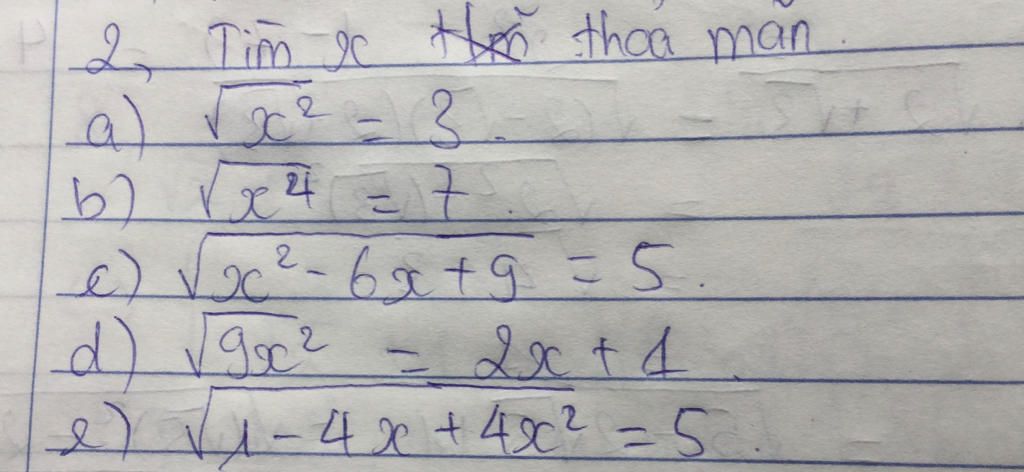 2, Tìm x thoả mãn.
a) √x² = 3.
b) √x⁴ = 7.
c) √x² - 6x + 9 = 5.
d) √9x² = 2x + 1.
e) √1 - 4x + 4x² = 5.